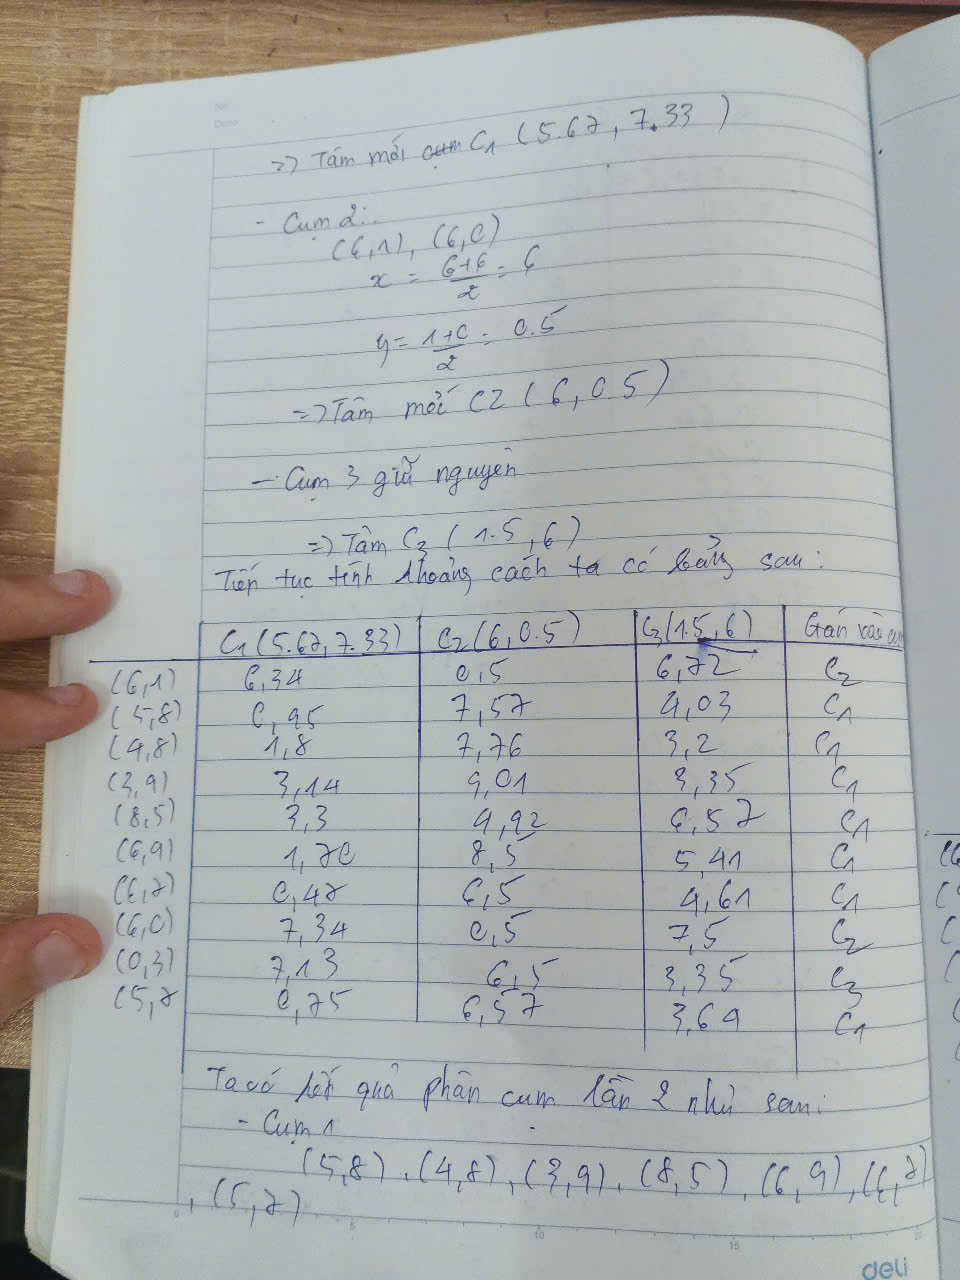 No:
Date:
=>) Tâm mới cụm C1 (5.67, 7.33)
- Cụm 2:
(6,1), (6,0)
x = 6+6/2 = 6
y = 1+0/2 = 0.5
=>) Tâm mới C2 (6, 0.5)
- Cụm 3 giữ nguyên
=>) Tâm C3 (1.5, 6)
Tiếp tục tính khoảng cách ta có bảng sau:
C1 (5.67, 7.33) C2 (6, 0.5) C3 (1.5, 6) Gán vào
(6,1) 6,34 0,5 6,72 C2
(5,8) 0,95 7,57 4,03 C1
(4,8) 1,8 7,76 3,2 C1
(3,9) 3,14 9,01 3,35 C1
(8,5) 3,3 4,92 6,57 C1
(6,9) 1,70 8,5 5,41 C1
(6,7) 0,47 6,5 4,61 C1
(6,0) 7,34 0,5 7,5 C2
(0,3) 7,13 6,5 3,35 C3
(5,7 0,75 6,57 3,64 C1
Ta có kết quả phân cụm lần 2 như sau:
- Cụm 1
(5,8), (4,8), (3,9), (8,5), (6,9), (6,7)
, (5,7)
5 10 15 20
deli